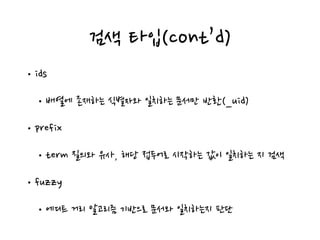 검색 타입(cont'd)
• ids
• 배열에 존재하는 식별자와 일치하는 문서만 반환(_uid)
• prefix
• term 질의와 유사, 해당 접두어로 시작하는 값이 일치하는 지 검색
• fuzzy
• 에디트 거리 알고리즘 기반으로 문서와 일치하는지 판단